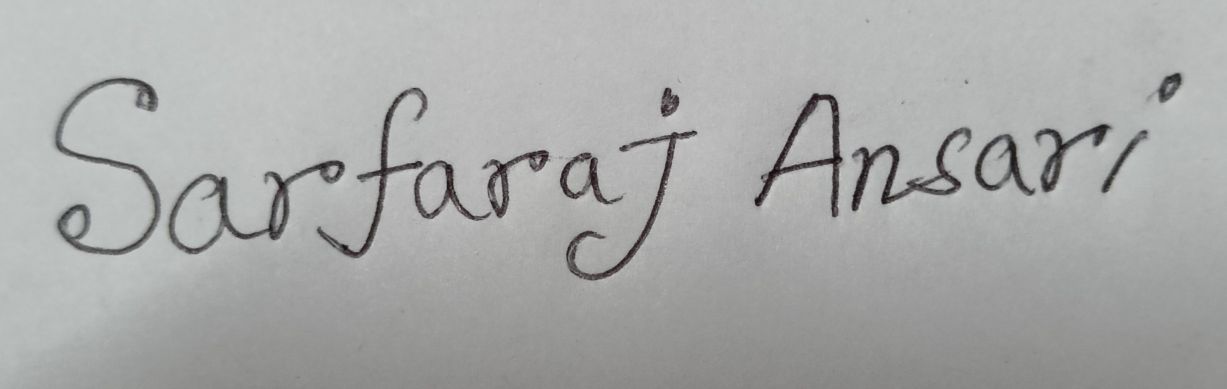 Sarfaraj Ansari